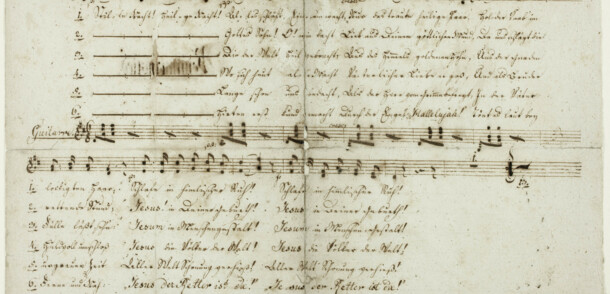 1. Stille Nacht! Heil'ge Nacht! Alles schläft. Eynsam wacht, Nur das traute heilige Paar. Holder Knab' im
2. Gottes Sohn! O! wie lacht Lieb' aus Deinem göttlichen Mund, Da uns schlägt die
3. Die der Welt Heil gebracht, Aus des Himmels goldenen Höhn, Aus der Gnaden
4. Wo sich heut alle Macht Väterlicher Liebe ergoß, Und als Bruder
5. Lange schon uns bedacht, Als der Herr vom Grimme befreyt, In der Väter
6. Hirten erst kund gemacht Durch der Engel Hallelujah! Tönt es laut bey
Guitarre.
1. lockigten Haar; Schlafe in himmlischer Ruh! Schlafe in himmlischer Ruh!
2. rettende Stund. Jesus! in Deiner Geburth! Jesus in Deiner Geburth!
3. Fülle läßt sehn: Jesum in Menschengestalt! Jesum in Menschengestalt!
4. Huldvoll umschloß Jesus die Völker der Welt! Jesus die Völker der Welt!
5. urgrauer Zeit Aller Welt Schonung verhieß! Aller Welt Schonung verhieß!
6. Ferne und Nah: Jesus der Retter ist da! Jesus der Retter ist da!